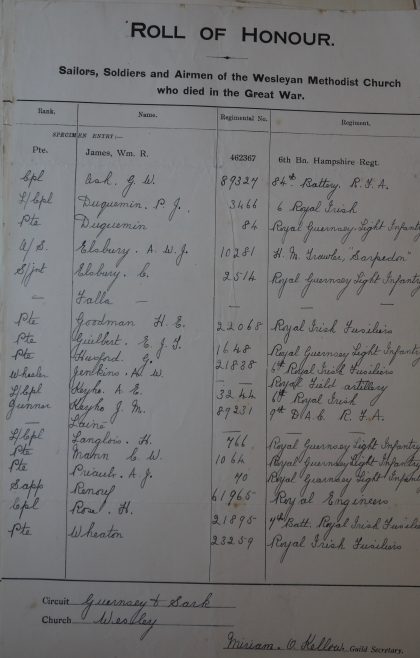 ROLL OF HONOUR.
Sailors, Soldiers and Airmen of the Wesleyan Methodist Church
who died in the Great War.
Rank. Name. Regimental No. Regiment.
SPECIMEN ENTRY:—
Pte. James, Wm. R. 462367 6th Bn. Hampshire Regt.
Cpl Ash. G. W. 89327 84th Battery. R. F. A.
L/Cpl Duquemin. P. J. 3466 6 Royal Irish
Pte Duquemin 84 Royal Guernsey Light Infantry
A/S. Elsbury. A. W. J. 10281 H. M. Trawler, "Sarpedon"
S/jnt Elsbury. C. 2514 Royal Guernsey Light Infantry
— Falla — — —
Pte Goodman H. E. 22068 Royal Irish Fusiliers
Pte Guilbert. E. J. 1648 Royal Guernsey Light Infantry
Pte G. 21838 6th Royal Irish Fusiliers
Wheeler Jenkins. W. — Royal Field artillery
L/Cpl Keyho. A. E. 3244 6th Royal Irish
Gunner Keyho J. M. 89231 9th D. A. C. R. F. A.
— Laine — —
L/Cpl Langlois. H. 766 Royal Guernsey Light Infantry
Pte Mann C. W. 1064 Royal Guernsey Light Infantry
Pte Priaulx. A. J. 70 Royal Guernsey Light Infant
Sapp Renouf 61965 Royal Engineers
Cpl Rose. H. 21895 7th Batt. Royal Irish Fusile
Pte Wheaton 23259 Royal Irish Fusiliers
Circuit Guernsey & Sark
Church Wesley
Miriam. O. Kellow Guild Secretary.